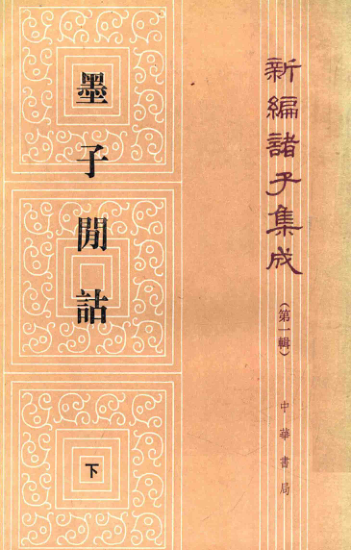 新編諸子集成
（第一輯）
中華書局
墨子閒詁
下